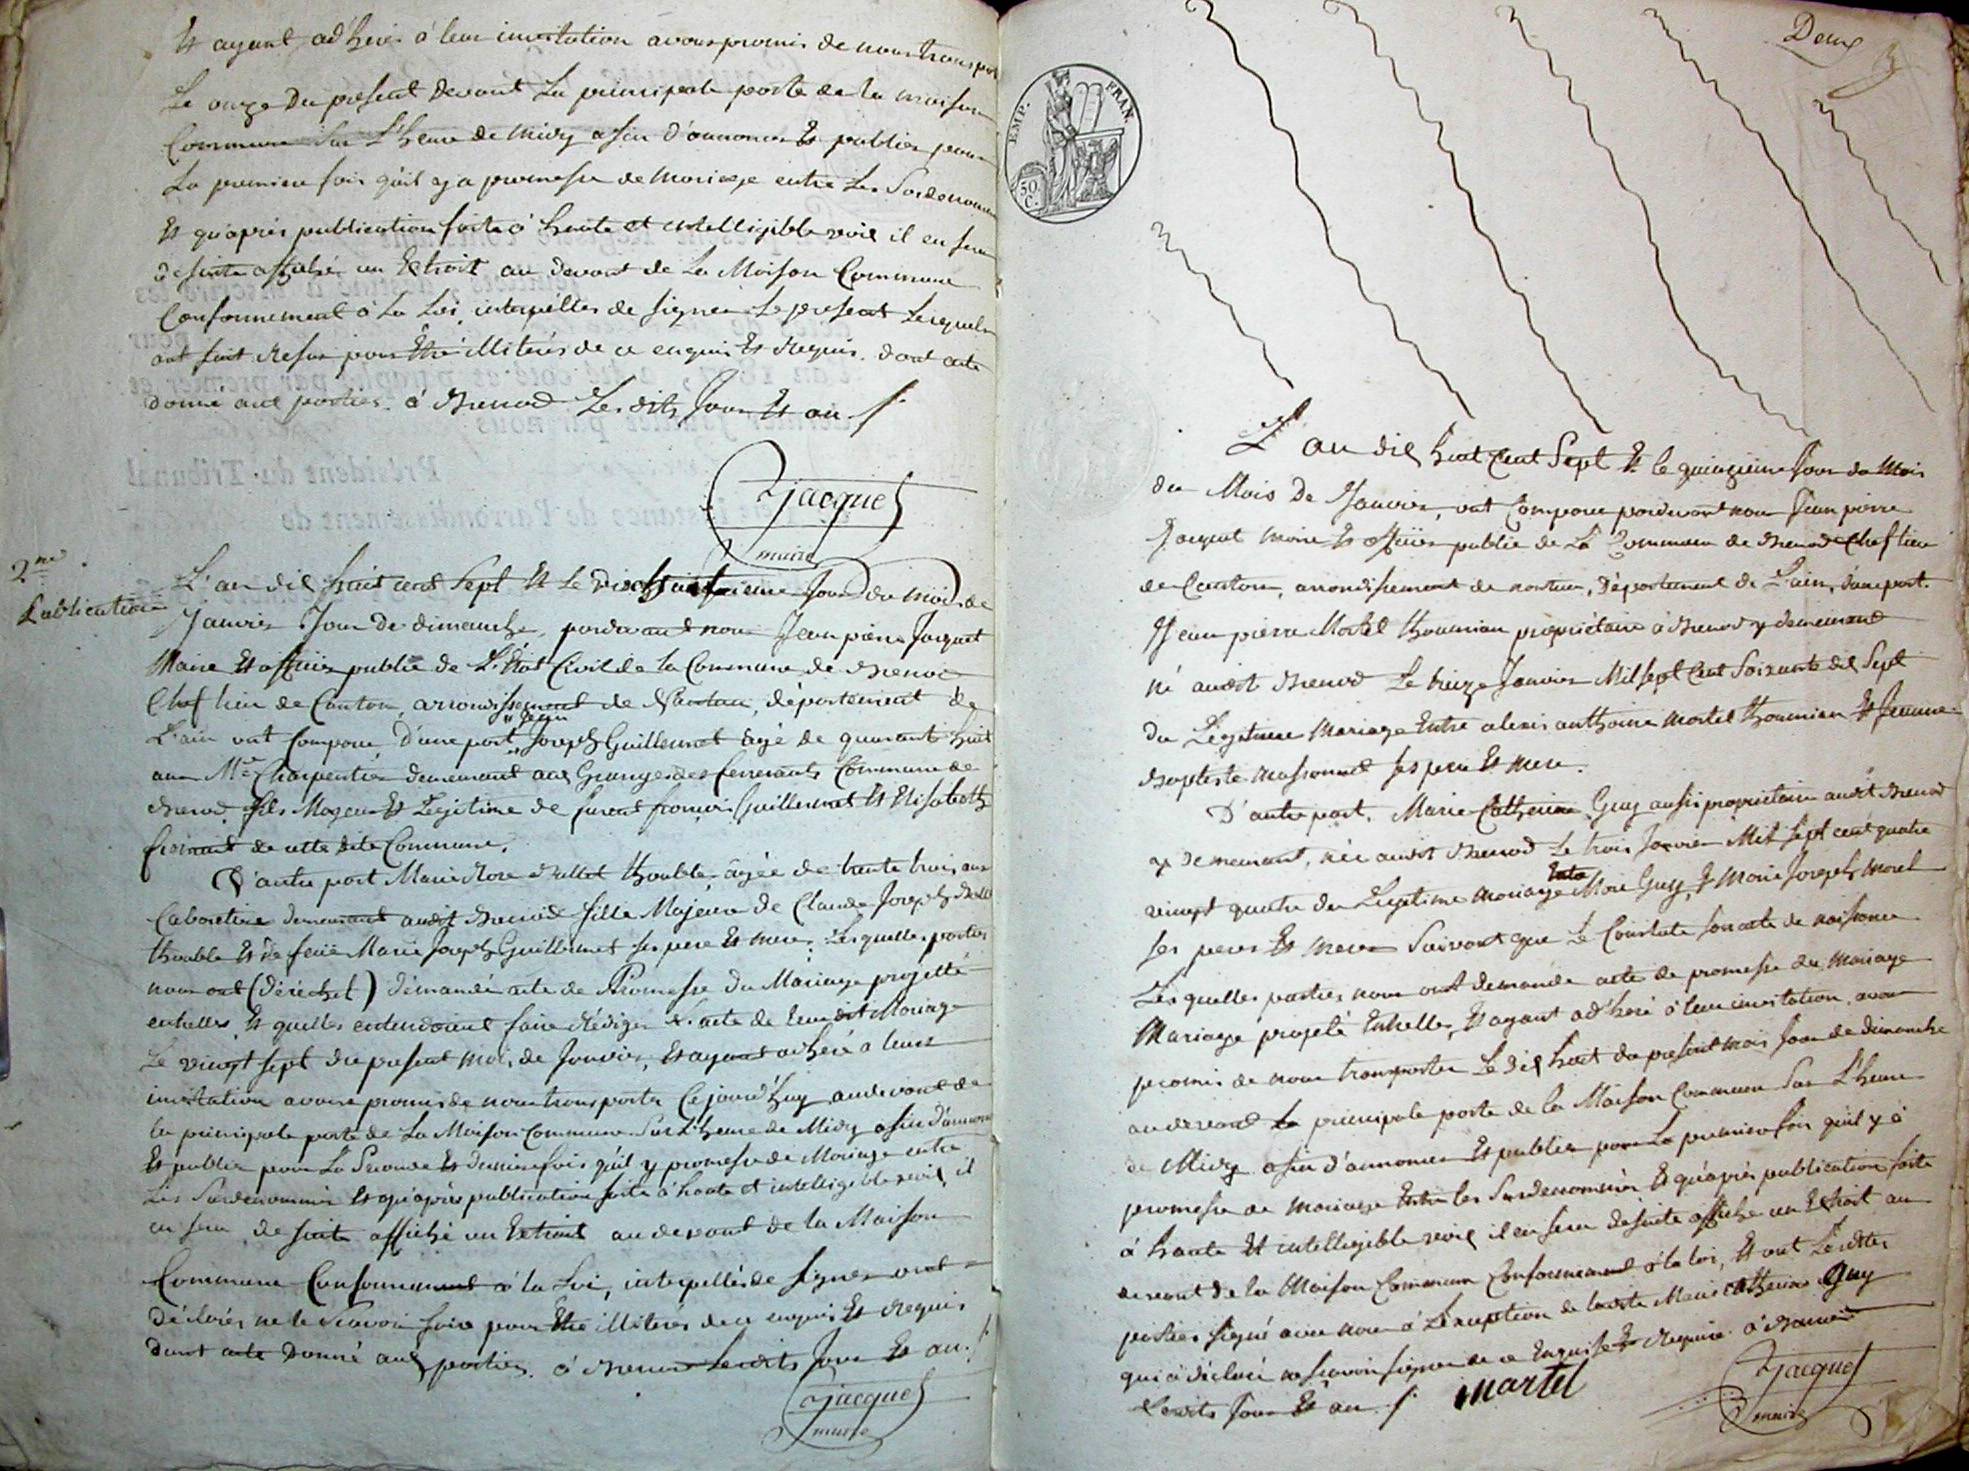 Et ayant adheré à leur invitation avons promis de nous transpor
Le onze du présent devant La principale porte de la maison
Commune sur L'heure de midy afin d'annoncer Et publier pour
La premiere fois qu'il y a promesse de Mariage entre Les Susdenommés
Et qu'après publication faite à haute et intelligible voix il en sera
de suite affiché un Extrait au devant de La Maison Commune
Conformement à La Loi, interpellés de signer Le present Lesquels
ont fait refus pour Etre illiterés de ce enquis Et Requis. dont acte
donné aux parties. à Brenod Les dits Jour Et an
Jacquet
maire
2me
Publication
L'an dix huit cent Sept Et Le dix huitieme Jour du mois de
Janvier Jour de dimanche, pardevant nous Jean pierre Jacquet
Maire Et officier public de L'Etat Civil de la Commune de Brenod
Chef lieu de Canton, arrondissement de Nantua, département de
Jean
L'ain ont Comparu D'une part Joseph Guillermet âgé de quarante huit
ans Mtre Charpentier demeurant aux Granges des ferrerants Commune de
Brenod fils Majeur Et Legitime de furent françois Guillermet Et Elisabeth
de cette dite Commune.
D'autre part Marie Rose Ballet thouble âgée de trente trois ans
Cabaretiere demeurant audit Brenod fille Majeure de Claude Joseph Ballet
thouble Et de feüe Marie Joseph Guillermet ses pere Et mere; Lesquelles parties
nous ont (derechef) démandé acte de Promesse du Mariage projetté
entrelles Et quelles entendoient faire rédiger L'acte de leur dit Mariage
Le vingt sept du present mois de Janvier, Et ayant adheré à leurs
invitation avons promis de nous transporter Ce jourd'huy au devant de
la principale porte de La Maison Commune Sur L'heure de Midy afin d'annoncer
Et publier pour La Seconde Et derniere fois qu'il y promesse de Mariage entre
Les Susdenommés Et qu'après publication faite à haute et intelligible voix, il
en sera de suite affiché un Extrait au devant de la Maison
Commune Conformement à la Loi, interpellés de signer ont
déclarés ne le Scavoir faire pour Etre illiterés de ce enquis Et Requis
dont acte Donné aux parties. à Brenod Lesdits Jour Et an.
Jacquet
maire
Deux
EMP. FRAN.
50 C.
L'an dix huit Cent Sept Et le quinzieme Jour du Mois
du Mois De Janvier, ont Comparu pardevant nous Jean pierre
Jacquet Maire Et officier public de La Commune de Brenod Chef lieu
de Canton, arrondissement de nantua, Département de L'ain, d'une part.
Jean pierre Martel thoumian propriétaire à Brenod y demeurant
Né audit Brenod Le treize Janvier Mil sept Cent Soixante dix Sept
du Légitime Mariage Entre alexis anthoine Martel thoumian Et Jeanne
Baptiste massonnet ses pere Et mere.
D'autre part, Marie Catherine Guy aussi propriétaire audit Brenod
y demeurant, née audit Brenod Le trois Janvier Mil sept cent quatre
Entre
vingt quatre du Legitime mariage Guy, Et Marie Joseph Morel
ses peres Et meres Suivant que Le Constate son acte de naissance
Lesquelles parties nous ont demandé acte de promesse de Mariage
Mariage projeté Entrelles, Et ayant adheré à leur invitation avons
promis de nous transporter Le dix huit du présent mois Jour de dimanche
au devant La principale porte de la Maison Commune Sur L'heure
de Midy afin d'annoncer Et publier pour La premiere fois qu'il y à
promesse de Mariage Entre les Susdenommés Et qu'après publication faite
à haute Et intelligible voix il en sera de suite affiché un Extrait au
devant de la Maison Commune Conformement à la loi, Et ont Lesdittes
parties signé avec nous à L'exception de laditte Marie Catherine Guy
qui a déclaré ne scavoir signer de ce Enquise Et Requise à Brenod
Lesdits Jour Et an
Martel
Jacquet
maire